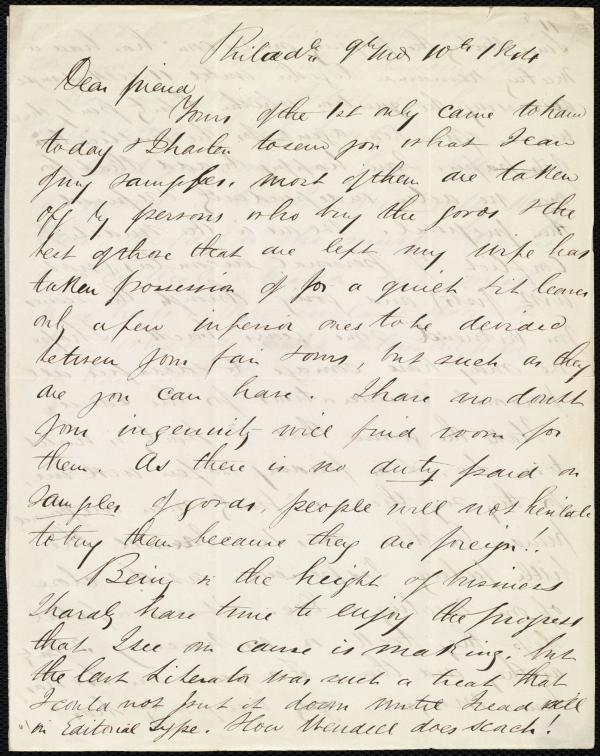 Philada 9th mo 10th 1844
Dear friend
Yours of the 1st only came to hand
today & I hasten to send you what I can
of my samples. most of them are taken
off by persons who buy the goods & the
best of those that are left my wife has
taken possession of for a quilt & it leaves
only a few inferior ones to be divided
between your fair & ours, but such as they
are you can have. I have no doubt
your ingenuity will find room for
them. As there is no duty paid on
samples of goods, people will not hesitate
to buy them because they are foreign!.
Being in the height of business
I hardly have time to enjoy the progress
that I see our cause is making, but
the last Liberator was such a treat that
I could not put it down until I read all
in Editorial type. How Wendell does scorch!